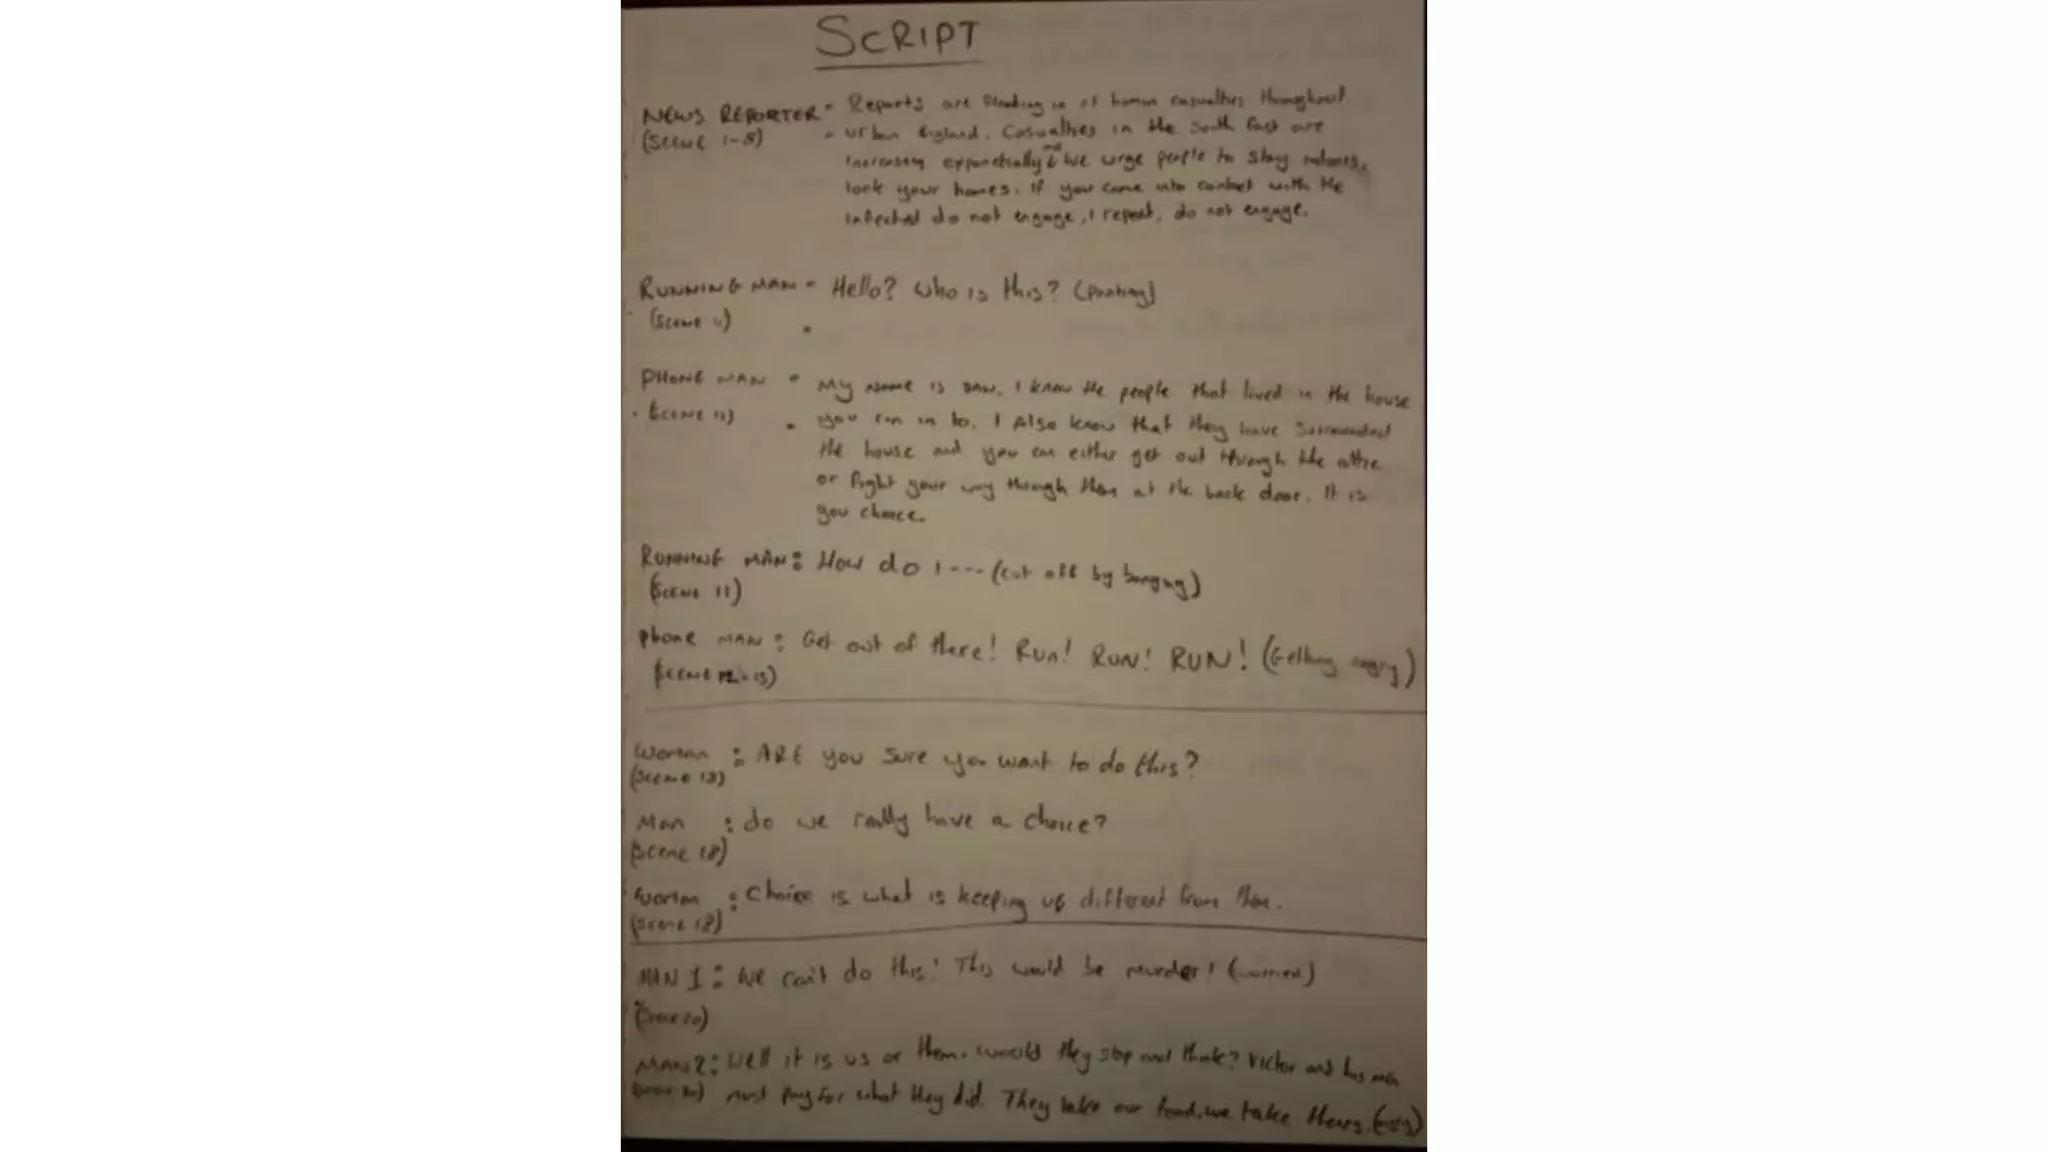 SCRIPT
NEWS REPORTER - Reports are flooding in of human casualties throughout
(SCENE 1-8) urban England. Casualties in the South East are
increasing exponetially and we urge people to stay indoors,
lock your homes. If you come into contact with the
infected do not engage, I repeat, do not engage.
RUNNING MAN - Hello? Who is this? (Panting)
(SCENE 11)
PHONE MAN - My name is DAN. I know the people that lived in the house
(SCENE 11) you ran in to. I Also know that they have surrounded
the house and you can either get out through the attic
or fight your way through them at the back door. It is
you choice.
RUNNING MAN: How do I---- (cut off by banging)
(SCENE 11)
phone MAN: Get out of there! Run! RUN! RUN! (Getting angry)
(SCENE 12-15)
Woman : ARE you sure you want to do this?
(Scene 18)
Man : do we really have a choice?
(Scene 18)
Woman : Choice is what is keeping us different from them.
(Scene 18)
MAN 1: We can't do this! This would be murder! (worried)
(Scene 20)
MAN 2: Well it is us or them. Would they stop and think? Victor and his men
(Scene 20) must pay for what they did. They take our food, we take theirs.